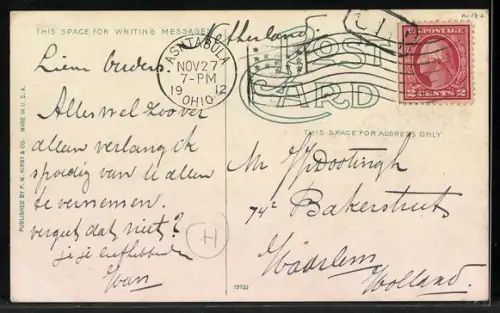 Netherland.
THIS SPACE FOR WRITING MESSAGES
POST
CARD
ASHTABULA
NOV 27
7-PM
1912
OHIO
U.S. POSTAGE
2 CENTS 2
THIS SPACE FOR ADDRESS ONLY
Lieve ouders.
Alles wel zoover
alleen verlang ik
spoedig van U allen
te vernemen.
vergeet dat niet?
je je liefhebbende
H
Mr
74² Bakerstreets
Haarlem
Holland.
PUBLISHED BY F. M. KIRBY & CO. MADE IN U.S.A.